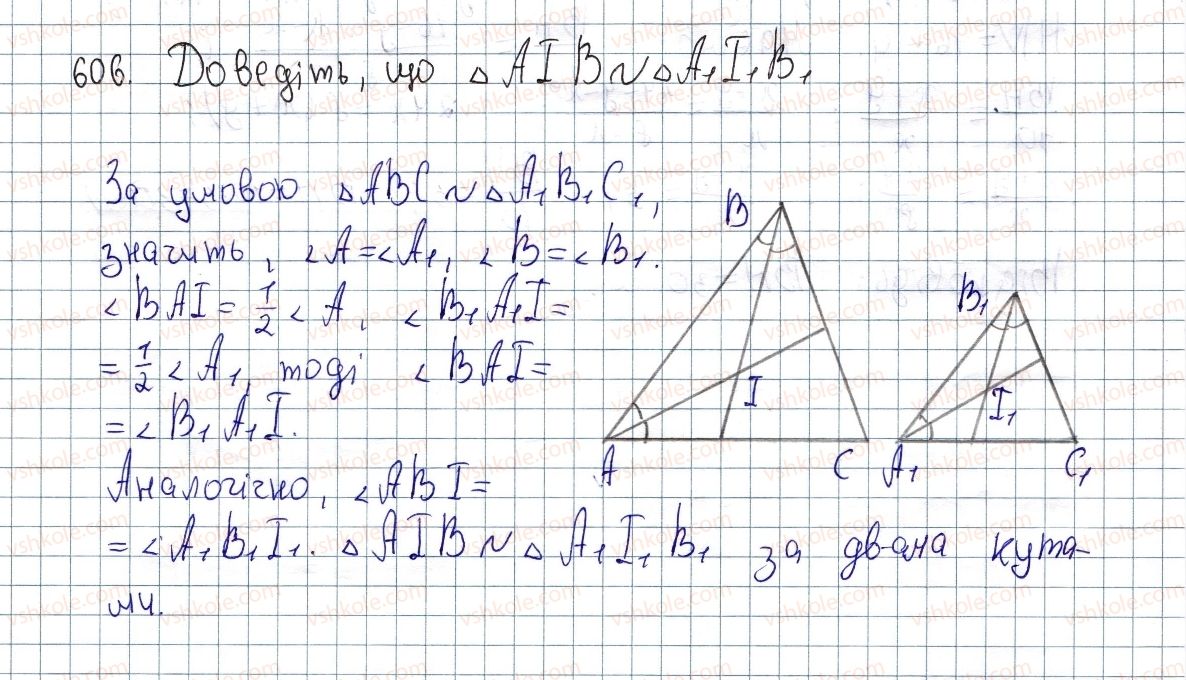 606. Доведіть, що △AIB ~ △A₁I₁B₁
За умовою △ABC ~ △A₁B₁C₁,
значить, ∠A = ∠A₁, ∠B = ∠B₁.
∠BAI = 1/2 ∠A, ∠B₁A₁I =
= 1/2 ∠A₁, тоді ∠BAI =
= ∠B₁A₁I.
Аналогічно, ∠ABI =
= ∠A₁B₁I₁. △AIB ~ △A₁I₁B₁ за двома кута-
ми.
B
B₁
I
I₁
A
C
A₁
C₁